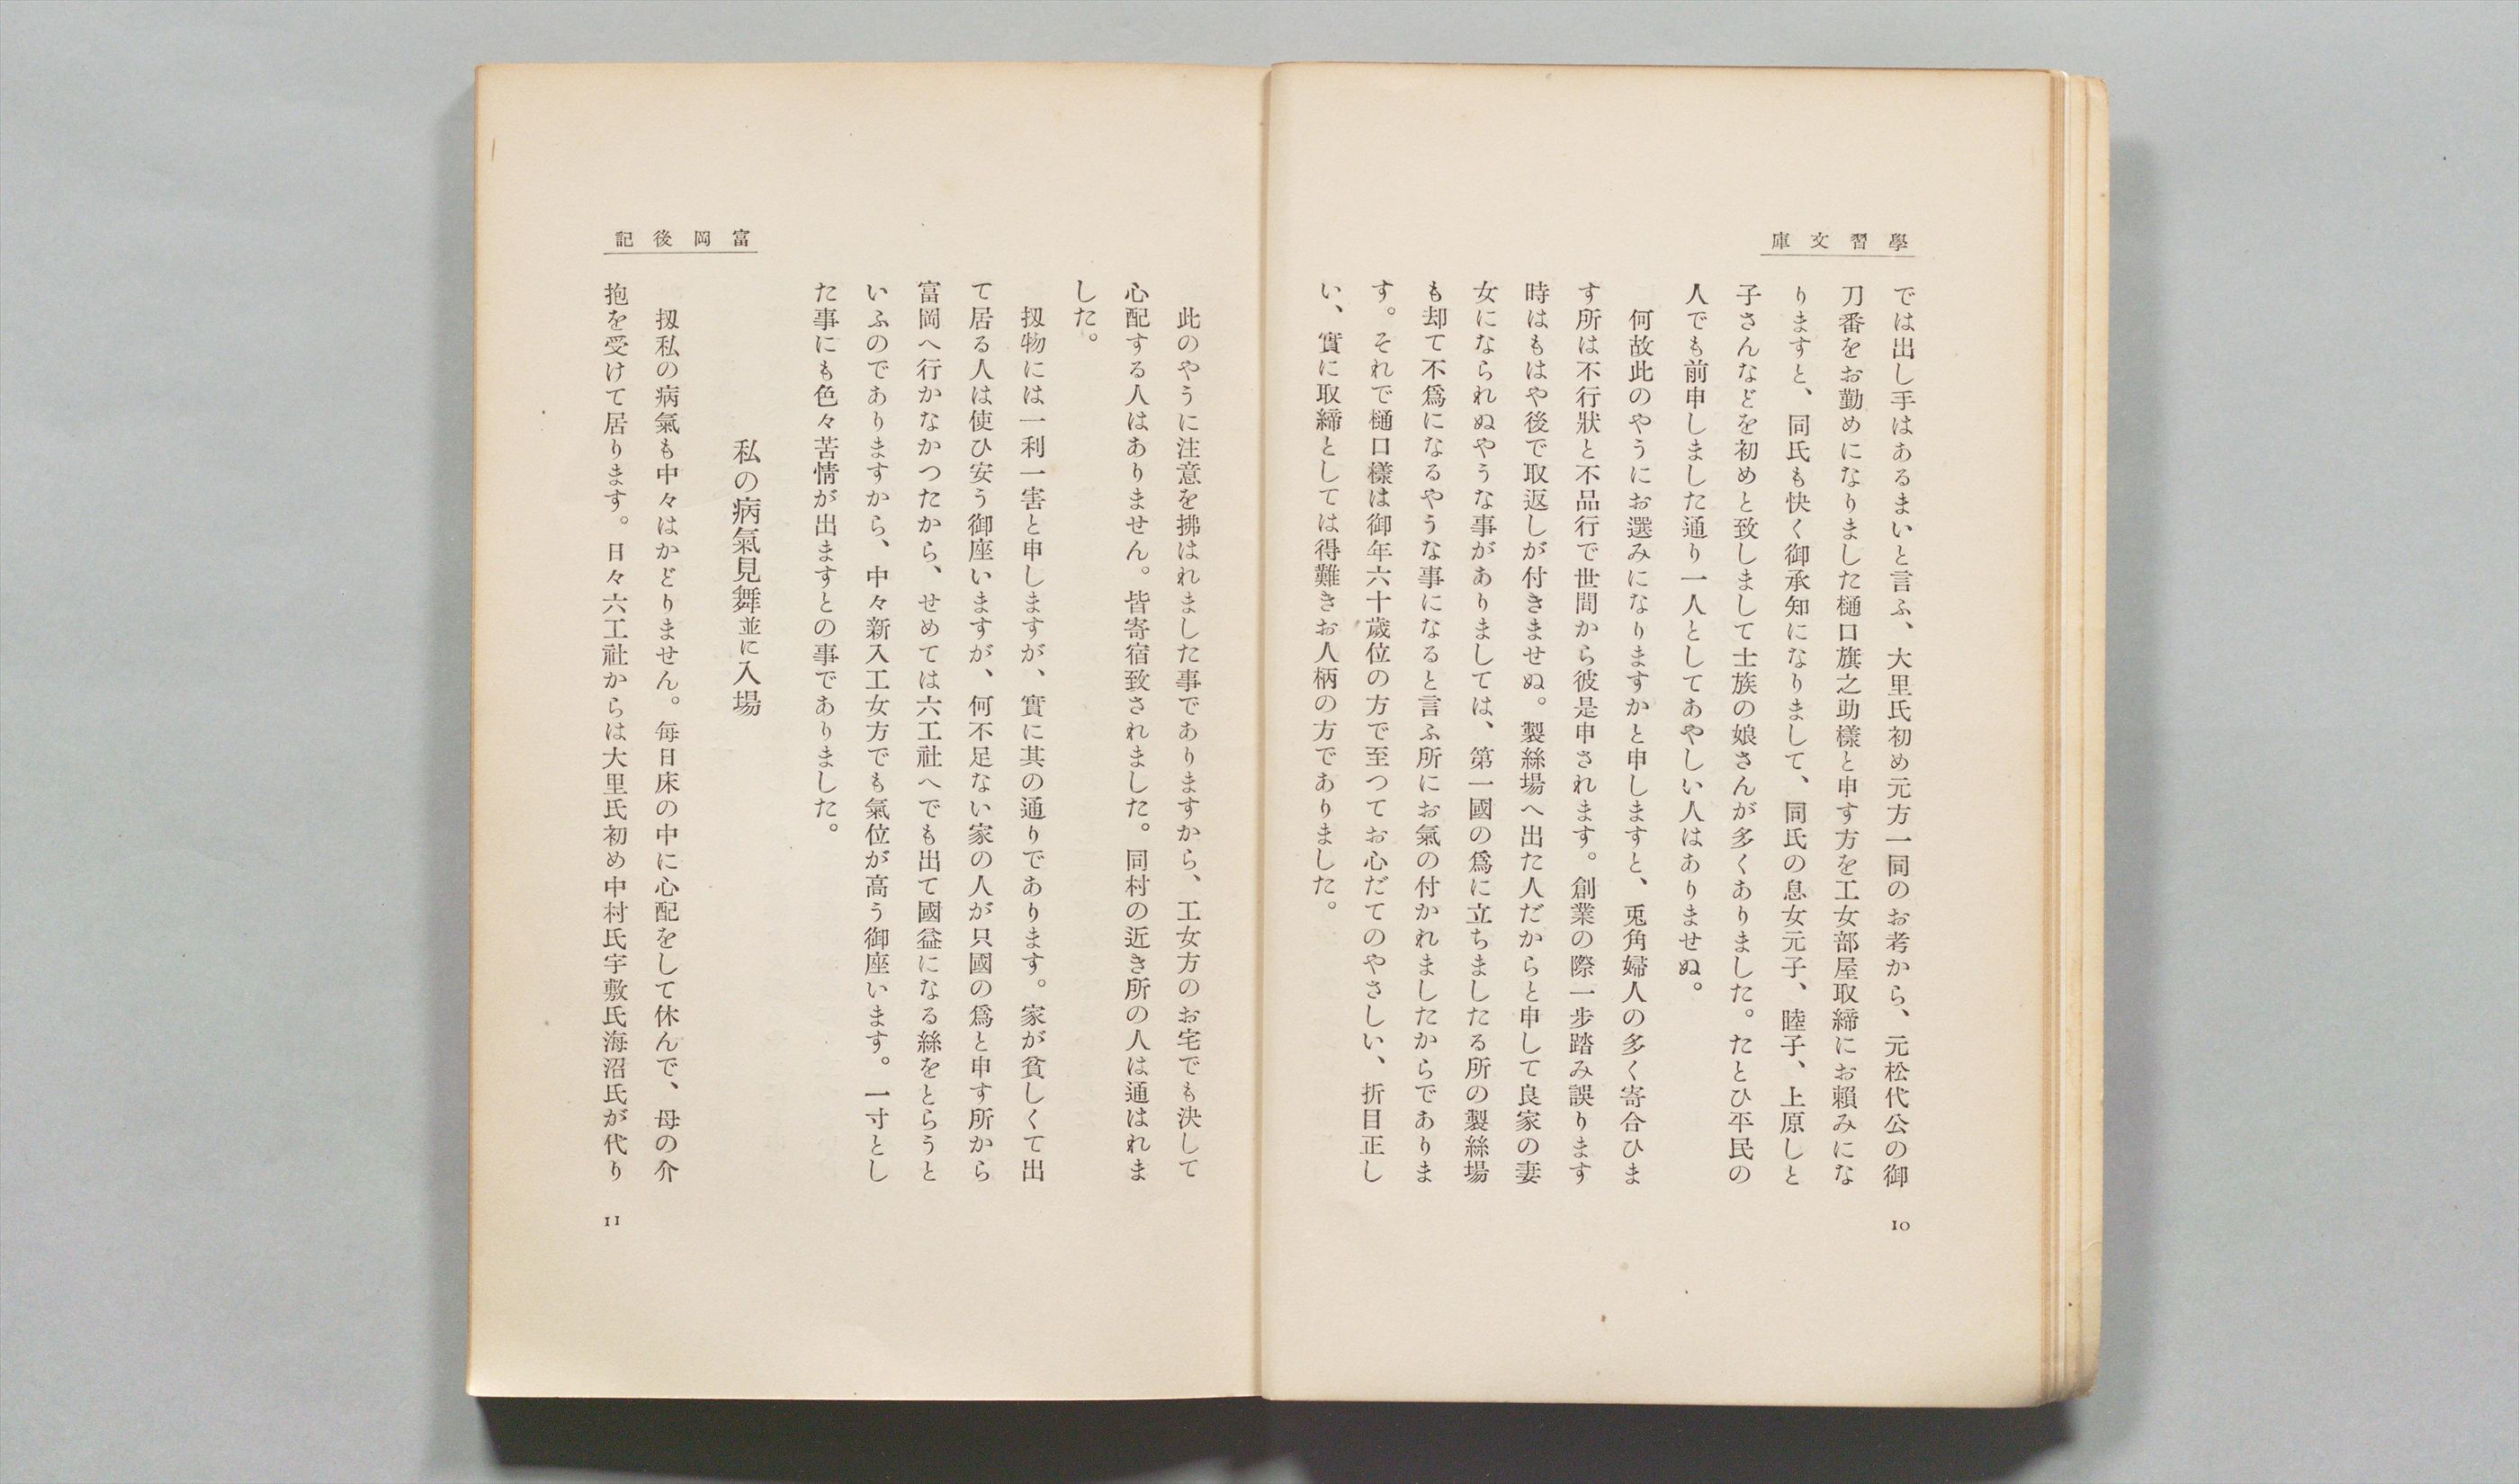 學習文庫
では出し手はあるまいと言ふ、大里氏初め元方一同のお考から、元松代公の御
刀番をお勤めになりました樋口旗之助樣と申す方を工女部屋取締にお賴みにな
りますと、同氏も快く御承知になりまして、同氏の息女元子、睦子、上原しと
子さんなどを初めと致しまして士族の娘さんが多くありました。たとひ平民の
人でも前申しました通り一人としてあやしい人はありませぬ。
何故此のやうにお選みになりますかと申しますと、兎角婦人の多く寄合ひま
す所は不行狀と不品行で世間から彼是申されます。創業の際一步踏み誤ります
時はもはや後で取返しが付きませぬ。製絲場へ出た人だからと申して良家の妻
女になられぬやうな事がありましては、第一國の爲に立ちましたる所の製絲場
も却て不爲になるやうな事になると言ふ所にお氣の付かれましたからでありま
す。それで樋口樣は御年六十歲位の方で至つてお心だてのやさしい、折目正し
い、實に取締としては得難きお人柄の方でありました。
10
富岡後記
此のやうに注意を拂はれました事でありますから、工女方のお宅でも決して
心配する人はありません。皆寄宿致されました。同村の近き所の人は通はれま
した。
扨物には一利一害と申しますが、實に其の通りであります。家が貧しくて出
て居る人は使ひ安う御座いますが、何不足ない家の人が只國の爲と申す所から
富岡へ行かなかつたから、せめては六工社へでも出て國益になる絲をとらうと
いふのでありますから、中々新入工女方でも氣位が高う御座います。一寸とし
た事にも色々苦情が出ますとの事でありました。
私の病氣見舞並に入場
扨私の病氣も中々はかどりません。每日床の中に心配をして休んで、母の介
抱を受けて居ります。日々六工社からは大里氏初め中村氏宇敷氏海沼氏が代り
11